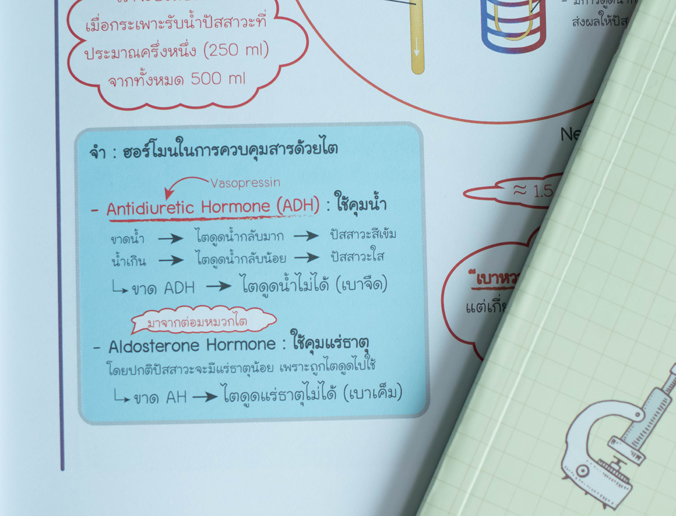 เมื่อกระเพาะรับน้ำปัสสาวะที่
ประมาณครึ่งหนึ่ง (250 ml)
จากทั้งหมด 500 ml
ส่งผลให้ปัส
จำ : ฮอร์โมนในการควบคุมสารด้วยไต
Vasopressin
- Antidiuretic Hormone (ADH) : ใช้คุมน้ำ
ขาดน้ำ → ไตดูดน้ำกลับมาก → ปัสสาวะสีเข้ม
น้ำเกิน → ไตดูดน้ำกลับน้อย → ปัสสาวะใส
↳ ขาด ADH → ไตดูดน้ำไม่ได้ (เบาจืด)
มาจากต่อมหมวกไต
- Aldosterone Hormone : ใช้คุมแร่ธาตุ
โดยปกติปัสสาวะจะมีแร่ธาตุน้อย เพราะถูกไตดูดไปใช้
↳ ขาด AH → ไตดูดแร่ธาตุไม่ได้ (เบาเค็ม)
Ne
≈ 1.5
"เบาหว
แต่เกี่